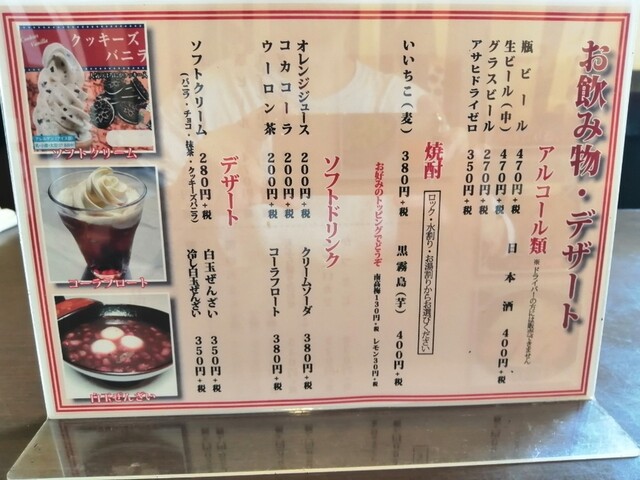 お飲み物・デザート
アルコール類
※ドライバーの方には販売はできません
瓶ビール 470円+税
生ビール(中) 470円+税
グラスビール 270円+税
アサヒドライゼロ 350円+税
日本酒 400円+税
焼酎
ロック・水割り・お湯割りからお選びください
いいちこ(麦) 380円+税
黒霧島(芋) 400円+税
お好みのトッピングでどうぞ 南高梅130円+税 レモン30円+税
ソフトドリンク
オレンジジュース 200円+税
コカコーラ 200円+税
ウーロン茶 200円+税
クリームソーダ 380円+税
コーラフロート 380円+税
デザート
ソフトクリーム 280円+税
(バニラ・チョコ・抹茶・クッキーズバニラ)
白玉ぜんざい 350円+税
冷し白玉ぜんざい 350円+税
クッキーズ
バニラ
ソフトクリーム
コーラフロート
白玉ぜんざい